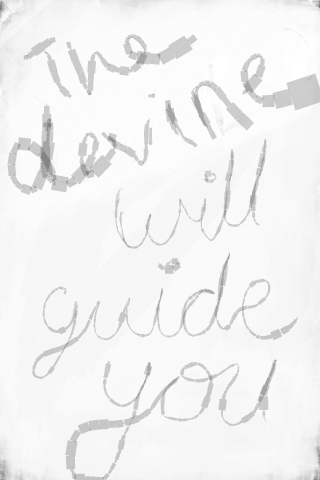 The
devine
will
guide
you